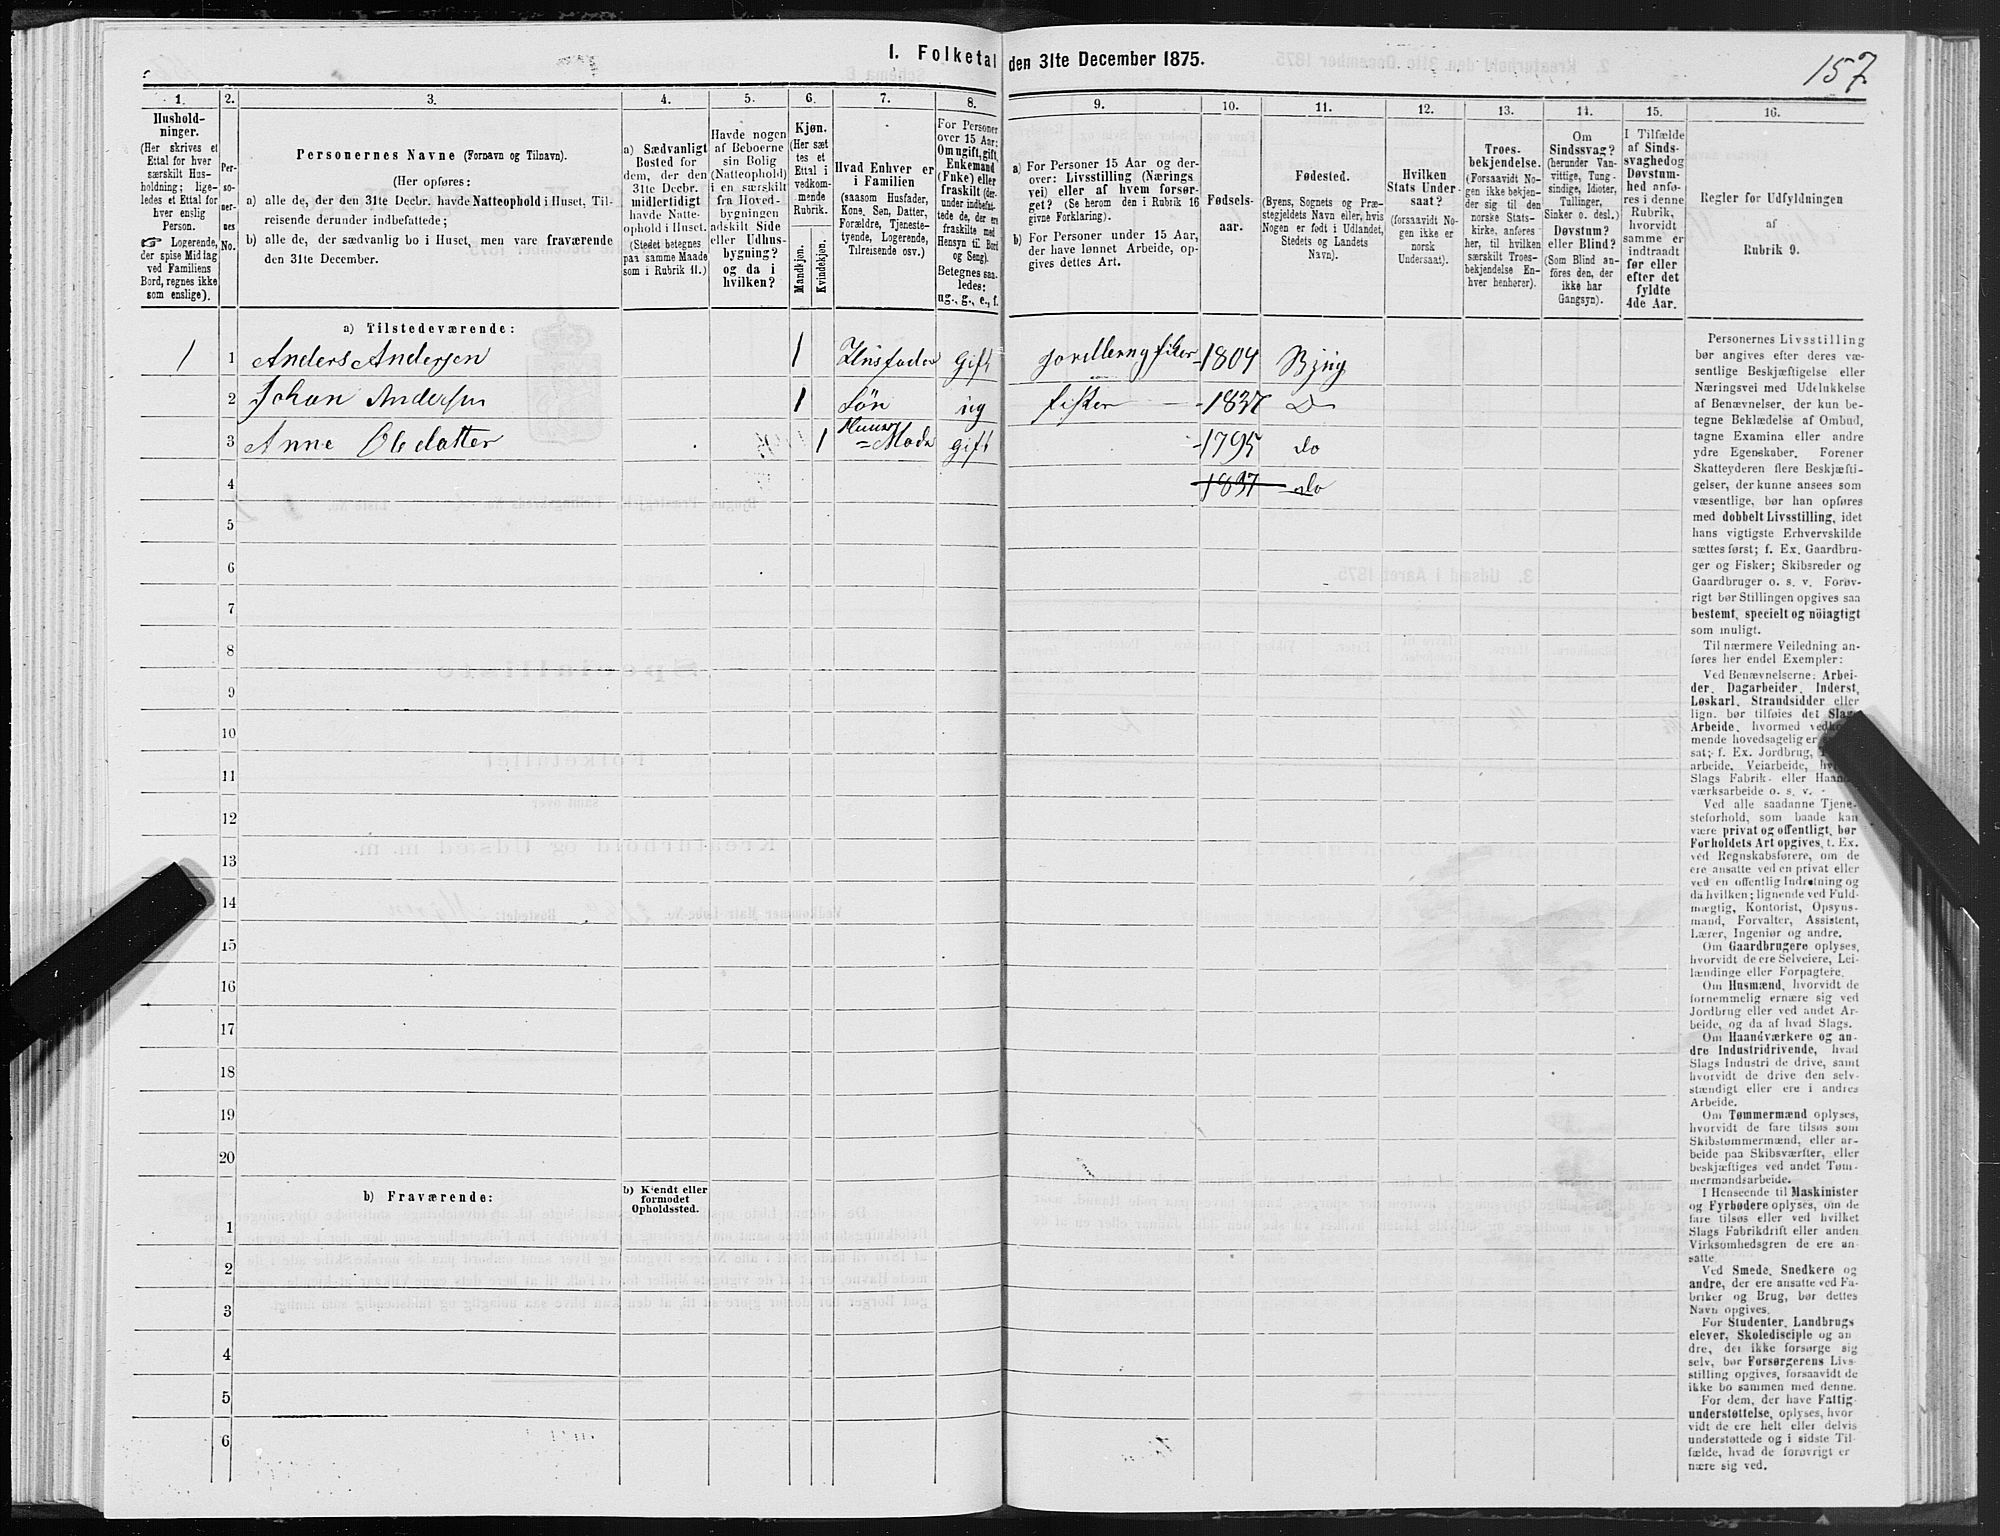 I. Folketal den 31te December 1875.
157
1.
2.
3.
4.
5.
6.
7.
8.
9.
10.
11.
12.
13.
14.
15.
16.
Hushold-
ninger.
(Her skrives et
Ettal for hver
særskilt Hus-
holdning; lige-
ledes et Ettal for
hver enslig
Person.
☞ Logerende,
der spise Middag
ved Familiens
Bord, regnes ikke
som enslige).
Per-
so-
ner-
nes
No.
Personernes Navne (Fornavn og Tilnavn).
(Her opføres:
a) alle de, der den 31te Decbr. havde Natteophold i Huset, Til-
reisende derunder indbefattede;
b) alle de, der sædvanlig bo i Huset, men vare fraværende
den 31te December.
a) Sædvanligt
Bosted for
dem, der den
31te Decbr.
midlertidigt
havde Natte-
ophold i Huset.
(Stedet betegnes
paa samme Maade
som i Rubrik 11.)
Havde nogen
af Beboerne
sin Bolig
(Natteophold)
i en særskilt
fra Hoved-
bygningen
adskilt Side
eller Udhus-
bygning?
og da i
hvilken?
Kjøn.
(Her sæt-
tes et
Ettal i
vedkom-
mende
Rubrik.
Mandkjøn.
Kvindekjøn.
Hvad Enhver er
i Familien
(saasom Husfader,
Kone, Søn, Datter,
Forældre, Tjeneste-
tyende, Logerende,
Tilreisende osv.)
For Personer
over 15 Aar:
Om ugift, gift,
Enkemand
(Enke) eller
fraskilt (der-
under indbefat-
tede de, der ere
fraskilte med
Hensyn til Bord
og Seng).
Betegnes saa-
ledes:
ug., g., e., f.
a) For Personer 15 Aar og der-
over: Livsstilling (Nærings-
vei) eller af hvem forsør-
get? (Se herom den i Rubrik 16
givne Forklaring).
b) For Personer under 15 Aar,
der have lønnet Arbeide, op-
gives dettes Art.
Fødsels-
aar.
Fødested.
(Byens, Sognets og Præ-
stegjeldets Navn eller, hvis
Nogen er født i Udlandet,
Stedets og Landets
Navn).
Hvilken
Stats Under-
saat?
(forsaavidt No-
gen ikke er
norsk
Undersaat).
Troes-
bekjendelse.
(Forsaavidt No-
gen ikke bekjen-
der sig til den
norske Stats-
kirke, anføres
her, til hvilken
særskilt Troes-
bekjendelse En-
hver henhører).
Om
Sindssvag?
(herunder Van-
vittige, Tung-
sindige, Idioter,
Tullinger,
Sinker o. desl.)
Døvstum?
eller Blind?
(Som Blind an-
føres den, der
ikke har
Gangsyn).
I Tilfælde
af Sinds-
svaghed og
Døvstum-
hed anfø-
res i denne
Rubrik,
hvorvidt
samme er
indtraadt
før eller
efter det
fyldte
4de Aar.
Regler for Udfyldningen
af
Rubrik 9.
a) Tilstedeværende:
1 1 Anders Andersen 1 Husfader gift 1804 Bjug
2 Johan Andersen 1 Søn ug fisker 1837 Do
3 Anne Oledatter 1 gift 1795 do
4 1837 do
5
6
7
8
9
10
11
12
13
14
15
16
17
18
19
20
b) Fraværende:
b) Kjendt eller
formodet
Opholdssted.
1
2
3
4
5
6
Personernes Livsstilling
bør angives efter deres væ-
sentlige Beskjæftigelse eller
Næringsvei med Udelukkelse
af Benævnelser, der kun be-
tegne Beklædelse af Ombud,
tagne Examina eller andre
ydre Egenskaber. Forener
Skatteyderen flere Beskjæfti-
gelser, der kunne ansees som
væsentlige, bør han opføres
med dobbelt Livsstilling, idet
hans vigtigste Erhvervskilde
sættes først; f. Ex. Gaardbru-
ger og Fisker; Skibsreder og
Gaardbruger o. s. v. Forøv-
rigt bør Stillingen opgives saa
bestemt, specielt og nöiagtigt
som muligt.
Til nærmere Veiledning an-
føres her endel Exempler:
Ved Benævnelserne: Arbei-
der, Dagarbeider, Inderst,
Løskarl, Strandsidder eller
lign. bør tilføies det Slags
Arbeide, hvormed vedkom-
mende hovedsagelig er
sat; f. Ex. Jordbrug,
arbeide, Veiarbeide,
Slags Fabrik- eller Haand-
værksarbeide o. s. v.
Ved alle saadanne Tjene-
steforhold, som baade kan
være privat og offentligt, bør
Forholdets Art opgives, f. Ex.
ved Regnskabsførere, om de
ere ansatte ved en privat eller
ved en offentlig Indretning og
da hvilken; lignende ved Fuld-
mægtig, Kontorist, Opsyns-
mand, Forvalter, Assistent,
Lærer, Ingeniør og andre.
Om Gaardbrugere oplyses,
hvorvidt de ere Selveiere, Lei-
lændinge eller Forpagtere.
Om Husmænd, hvorvidt de
fornemmelig ernære sig ved
Jordbrug eller ved andet Ar-
beide, og da af hvad Slags.
Om Haandværkere og an-
dre Industridrivende, hvad
Slags Industri de drive, samt
hvorvidt de drive den selv-
stændigt eller ere i andres
Arbeide.
Om Tømmermænd oplyses,
hvorvidt de fare tilsøs som
Skibstømmermænd, eller ar-
beide paa Skibsværfter, eller
beskjæftiges ved andet Tøm-
mermandsarbeide.
I Henseende til Maskinister
og Fyrbødere oplyses, om de
fare tilsøs eller ved hvilket
Slags Fabrikdrift eller anden
Virksomhedsgren de ere an-
satte.
Ved Smede, Snedkere og
andre, der ere ansatte ved Fa-
briker og Brug, bør dettes
Navn opgives.
For Studenter, Landbrugs-
elever, Skoledisciple og an-
dre, der ikke forsørge sig
selv, bør Forsørgerens Livs-
stilling opgives, forsaavidt de
ikke bo sammen med denne.
For dem, der have Fattig-
understøttelse, oplyses, hvor-
vidt de ere helt eller delvis
understøttede og i sidste Til-
fælde, hvad de forøvrigt er-
nære sig ved.